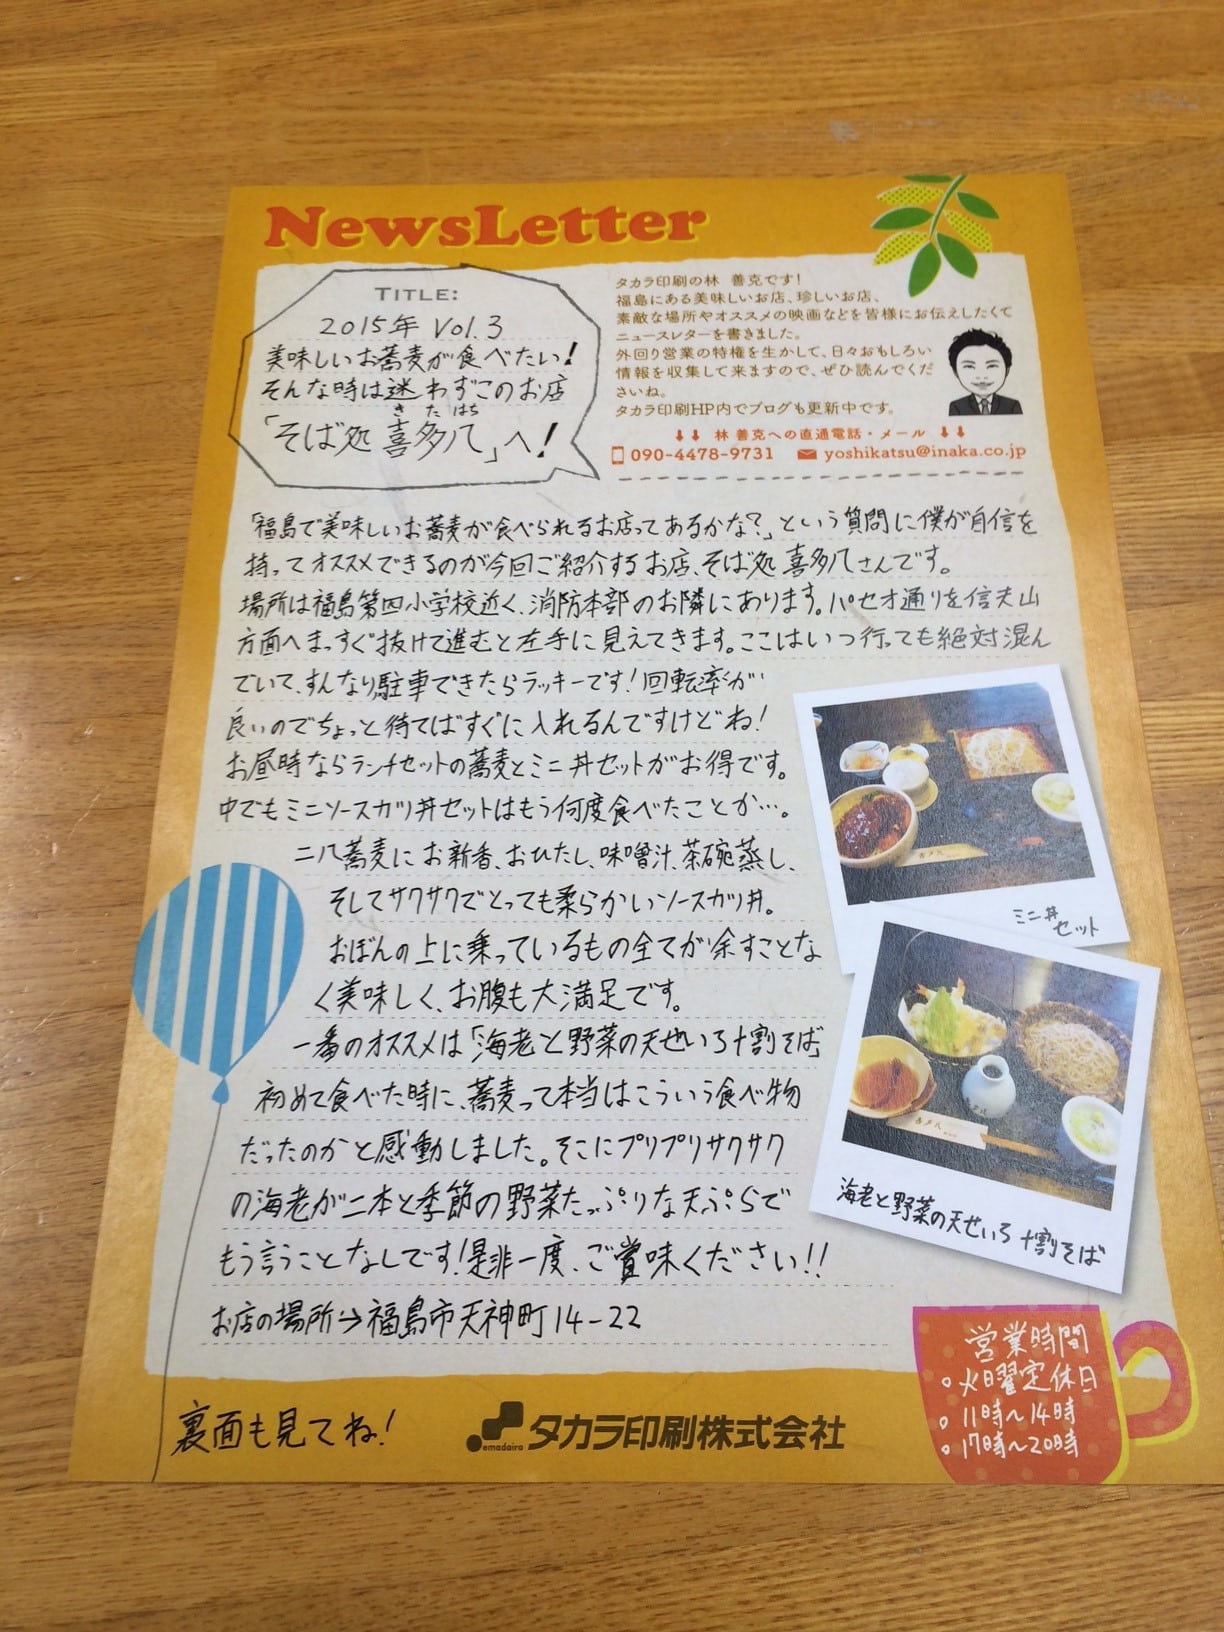 NewsLetter
TITLE:
2015年 Vol.3
美味しいお蕎麦が食べたい!
そんな時は迷わずこのお店
きたはち
「そば処 喜多八」へ!
タカラ印刷の林 善克です!
福島にある美味しいお店、珍しいお店、
素敵な場所やオススメの映画などを皆様にお伝えしたくて
ニュースレターを書きました。
外回り営業の特権を生かして、日々おもしろい
情報を収集して来ますので、ぜひ読んでくだ
さいね。
タカラ印刷HP内でブログも更新中です。
↓↓ 林 善克への直通電話・メール ↓↓
090-4478-9731 yoshikatsu@inaka.co.jp
「福島で美味しいお蕎麦が食べられるお店ってあるかな?」という質問に僕が自信を
持ってオススメできるのが今回ご紹介するお店、そば処 喜多八さんです。
場所は福島第四小学校近く、消防本部のお隣にあります。パセオ通りを信夫山
方面へまっすぐ抜けて進むと左手に見えてきます。ここはいつ行っても絶対混ん
でいて、すんなり駐車できたらラッキーです!回転率が
良いのでちょっと待てばすぐに入れるんですけどね!
お昼時ならランチセットの蕎麦とミニ丼セットがお得です。
中でもミニソースカツ丼セットはもう何度食べたことか…。
二八蕎麦にお新香、おひたし、味噌汁、茶碗蒸し、
そしてサクサクでとっても柔らかいソースカツ丼。
おぼんの上に乗っているもの全てが余すことな
く美味しく、お腹も大満足です。
一番のオススメは「海老と野菜の天せいろ十割そば」
初めて食べた時に、蕎麦って本当はこういう食べ物
だったのかと感動しました。そこにプリプリサクサク
の海老が二本と季節の野菜たっぷりな天ぷらで
もう言うことなしです!是非一度、ご賞味ください!!
お店の場所→福島市天神町14-22
ミニ丼
セット
海老と野菜の天せいろ 十割そば
営業時間
○火曜定休日
○11時～14時
○17時～20時
裏面も見てね!
emadoiro
タカラ印刷株式会社